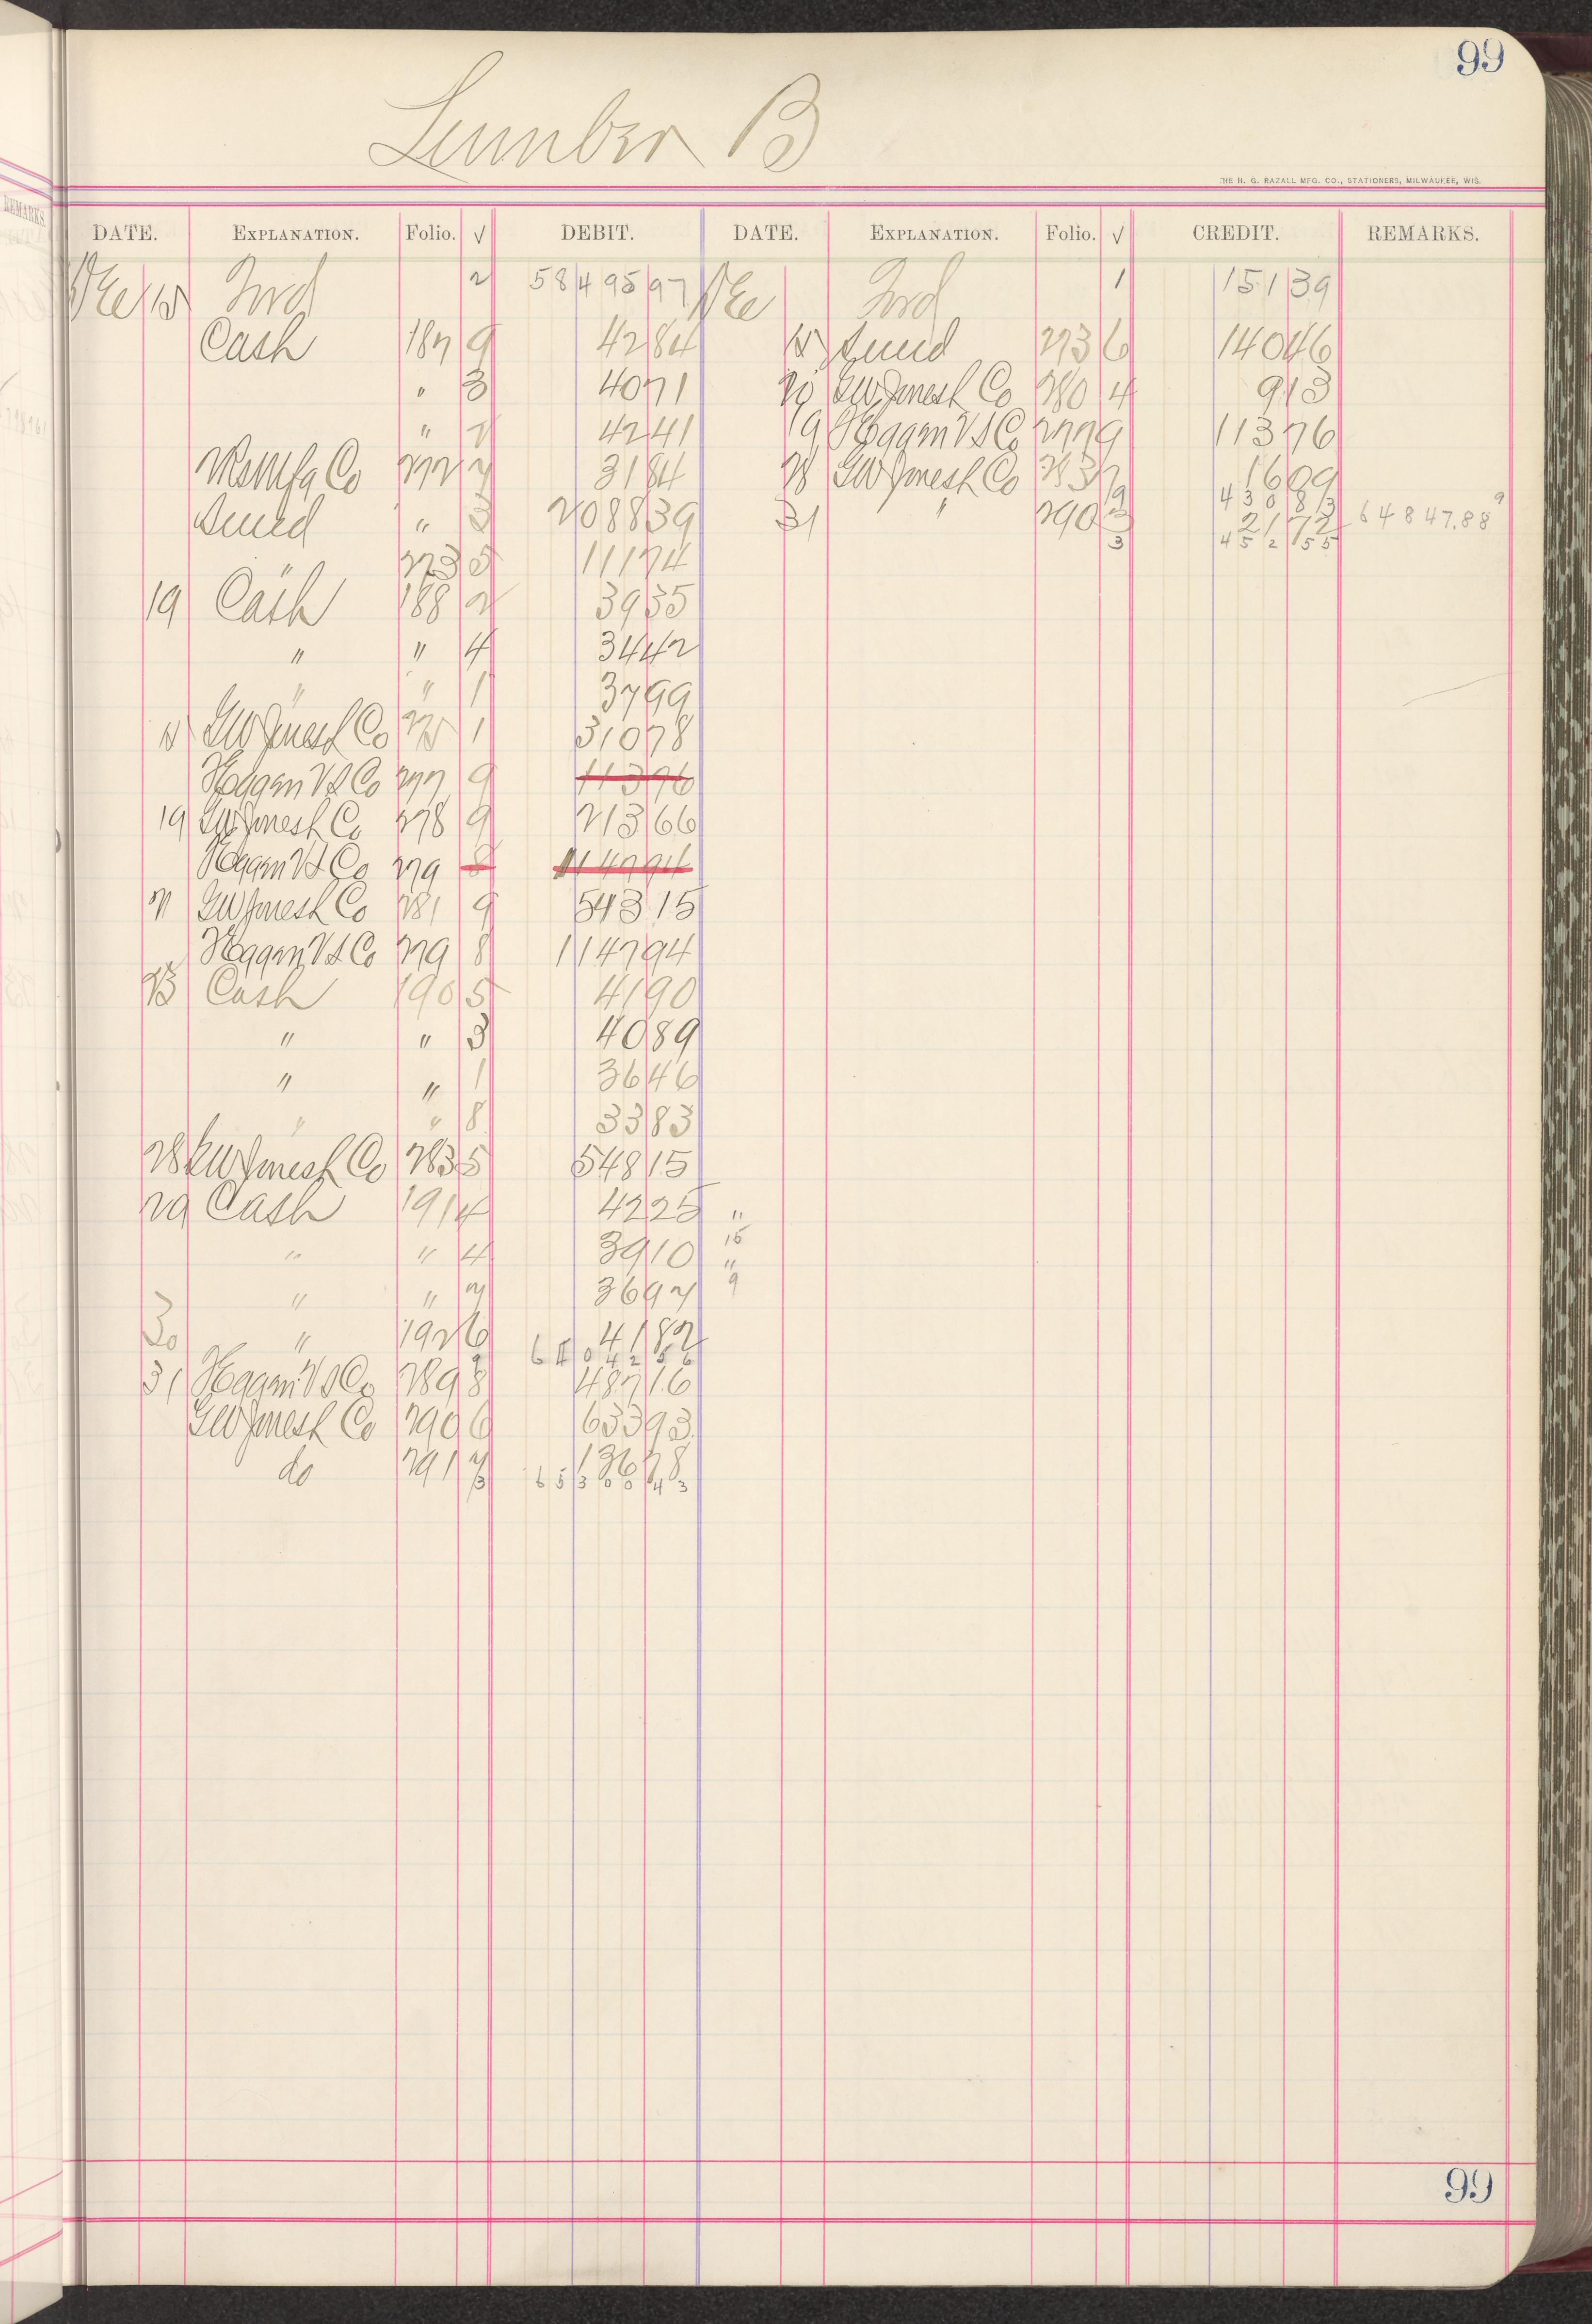 99
Lumber B
THE H. G. RAZALL MFG. CO., STATIONERS, MILWAUKEE, WIS.
REMARKS.
DATE. EXPLANATION. Folio. √ DEBIT. DATE. EXPLANATION. Folio. √ CREDIT. REMARKS.
Dec 15 Ford 2 58495 97 Dec Ford 1 151 39
Cash 187 9 42 84 15 Sund 273 6 140 46
" 3 40 71 20 GW Jones L Co 280 4 9 13
" 2 42 41 19 Hoggm V S Co 277 9 113 76
Mfg Co 272 7 31 84 28 GW Jones L Co 283 7 16 09
430 8 13
Sund " 3 2088 39 31 " 290 3 21 72 64847.88 9
3 452 55
" 273 5 111 74
19 Cash 188 2 39 35
" " 4 34 42
" " 1 37 99
15 GW Jones L Co 275 1 310 78
Hoggm V S Co 277 9 113 76
19 GW Jones L Co 278 9 213 66
Hoggm V S Co 279 8 1147 94
21 GW Jones L Co 281 9 543 15
Hoggm V S Co 279 8 1147 94
23 Cash 190 5 41 90
" " 3 40 89
" " 1 36 46
" " 8 33 83
28 GW Jones L Co 283 5 548 15
29 Cash 191 4 42 25 "
" " 4 39 10 15
"
" " 7 36 97 9
30 " 192 6 41 82
64042 56
31 Hoggm V S Co 289 8 487 16
GW Jones L Co 290 6 633 93
do 291 7 136 78
3 65300 43
99